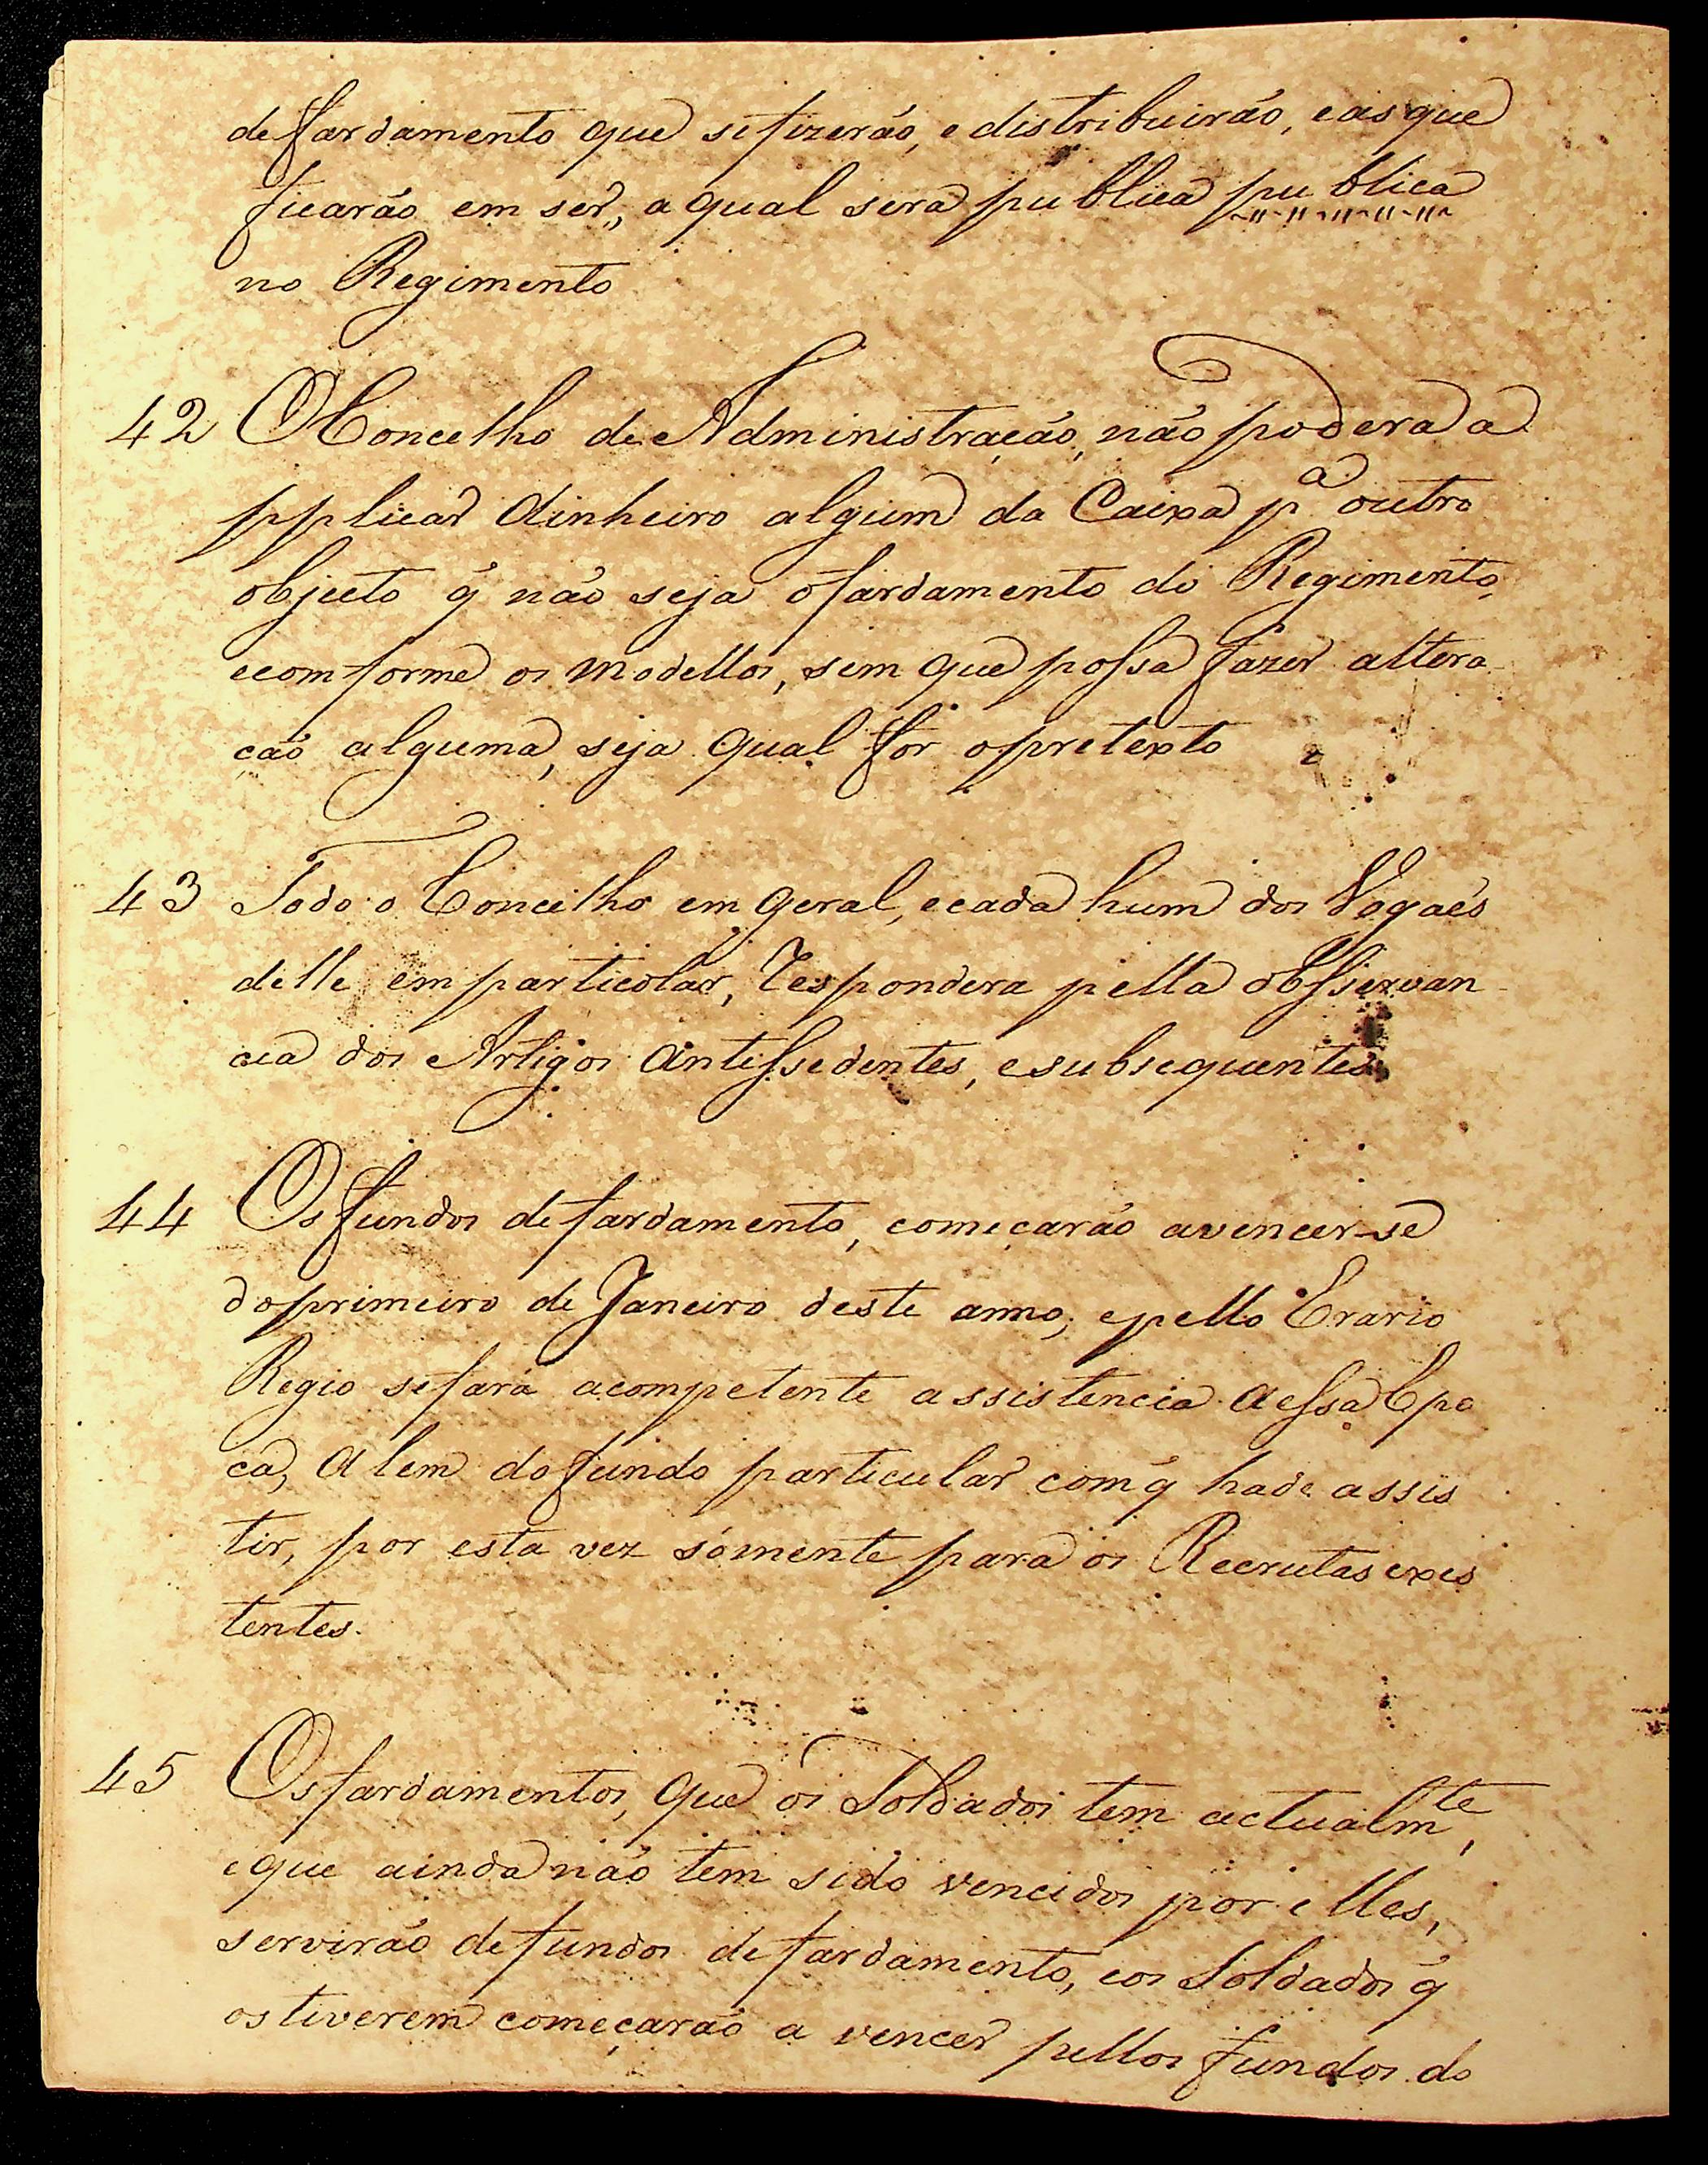 de fardamento que se fizerão, e distribuirão, e as que
ficarão em ser, a qual sera publica publica
no Regimento
42 O Concelho de Administração, não poderá a
pplicar dinheiro algum da Caixa pª outro
objecto q̃ não seja o fardamento do Regimento,
ecomforme os modellos, sem que possa fazer altera-
ção alguma, seja qual for o pretexto
43 Todo o Concelho em geral, e cada hum dos Vogaes
delle em particolar, Respondera pella obsservan-
cia dos Artigos Antissedentes, e subsequentes
44 Os fundos de fardamento, começarão a vencer-se
do primeiro de Janeiro deste anno; e pello Erario
Regio se fará a competente assistencia a essa Epo
ca, Alem do fundo particular com q̃ hade assis
tir, por esta vez sómente para os Recrutas exis
tentes.
45 Os fardamentos, que os Soldados tem actualmte,
e que ainda não tem sido vencidos por elles,
servirão de fundos de fardamento, e os Soldados q̃
os tiverem começarão a vencer pellos fundos do